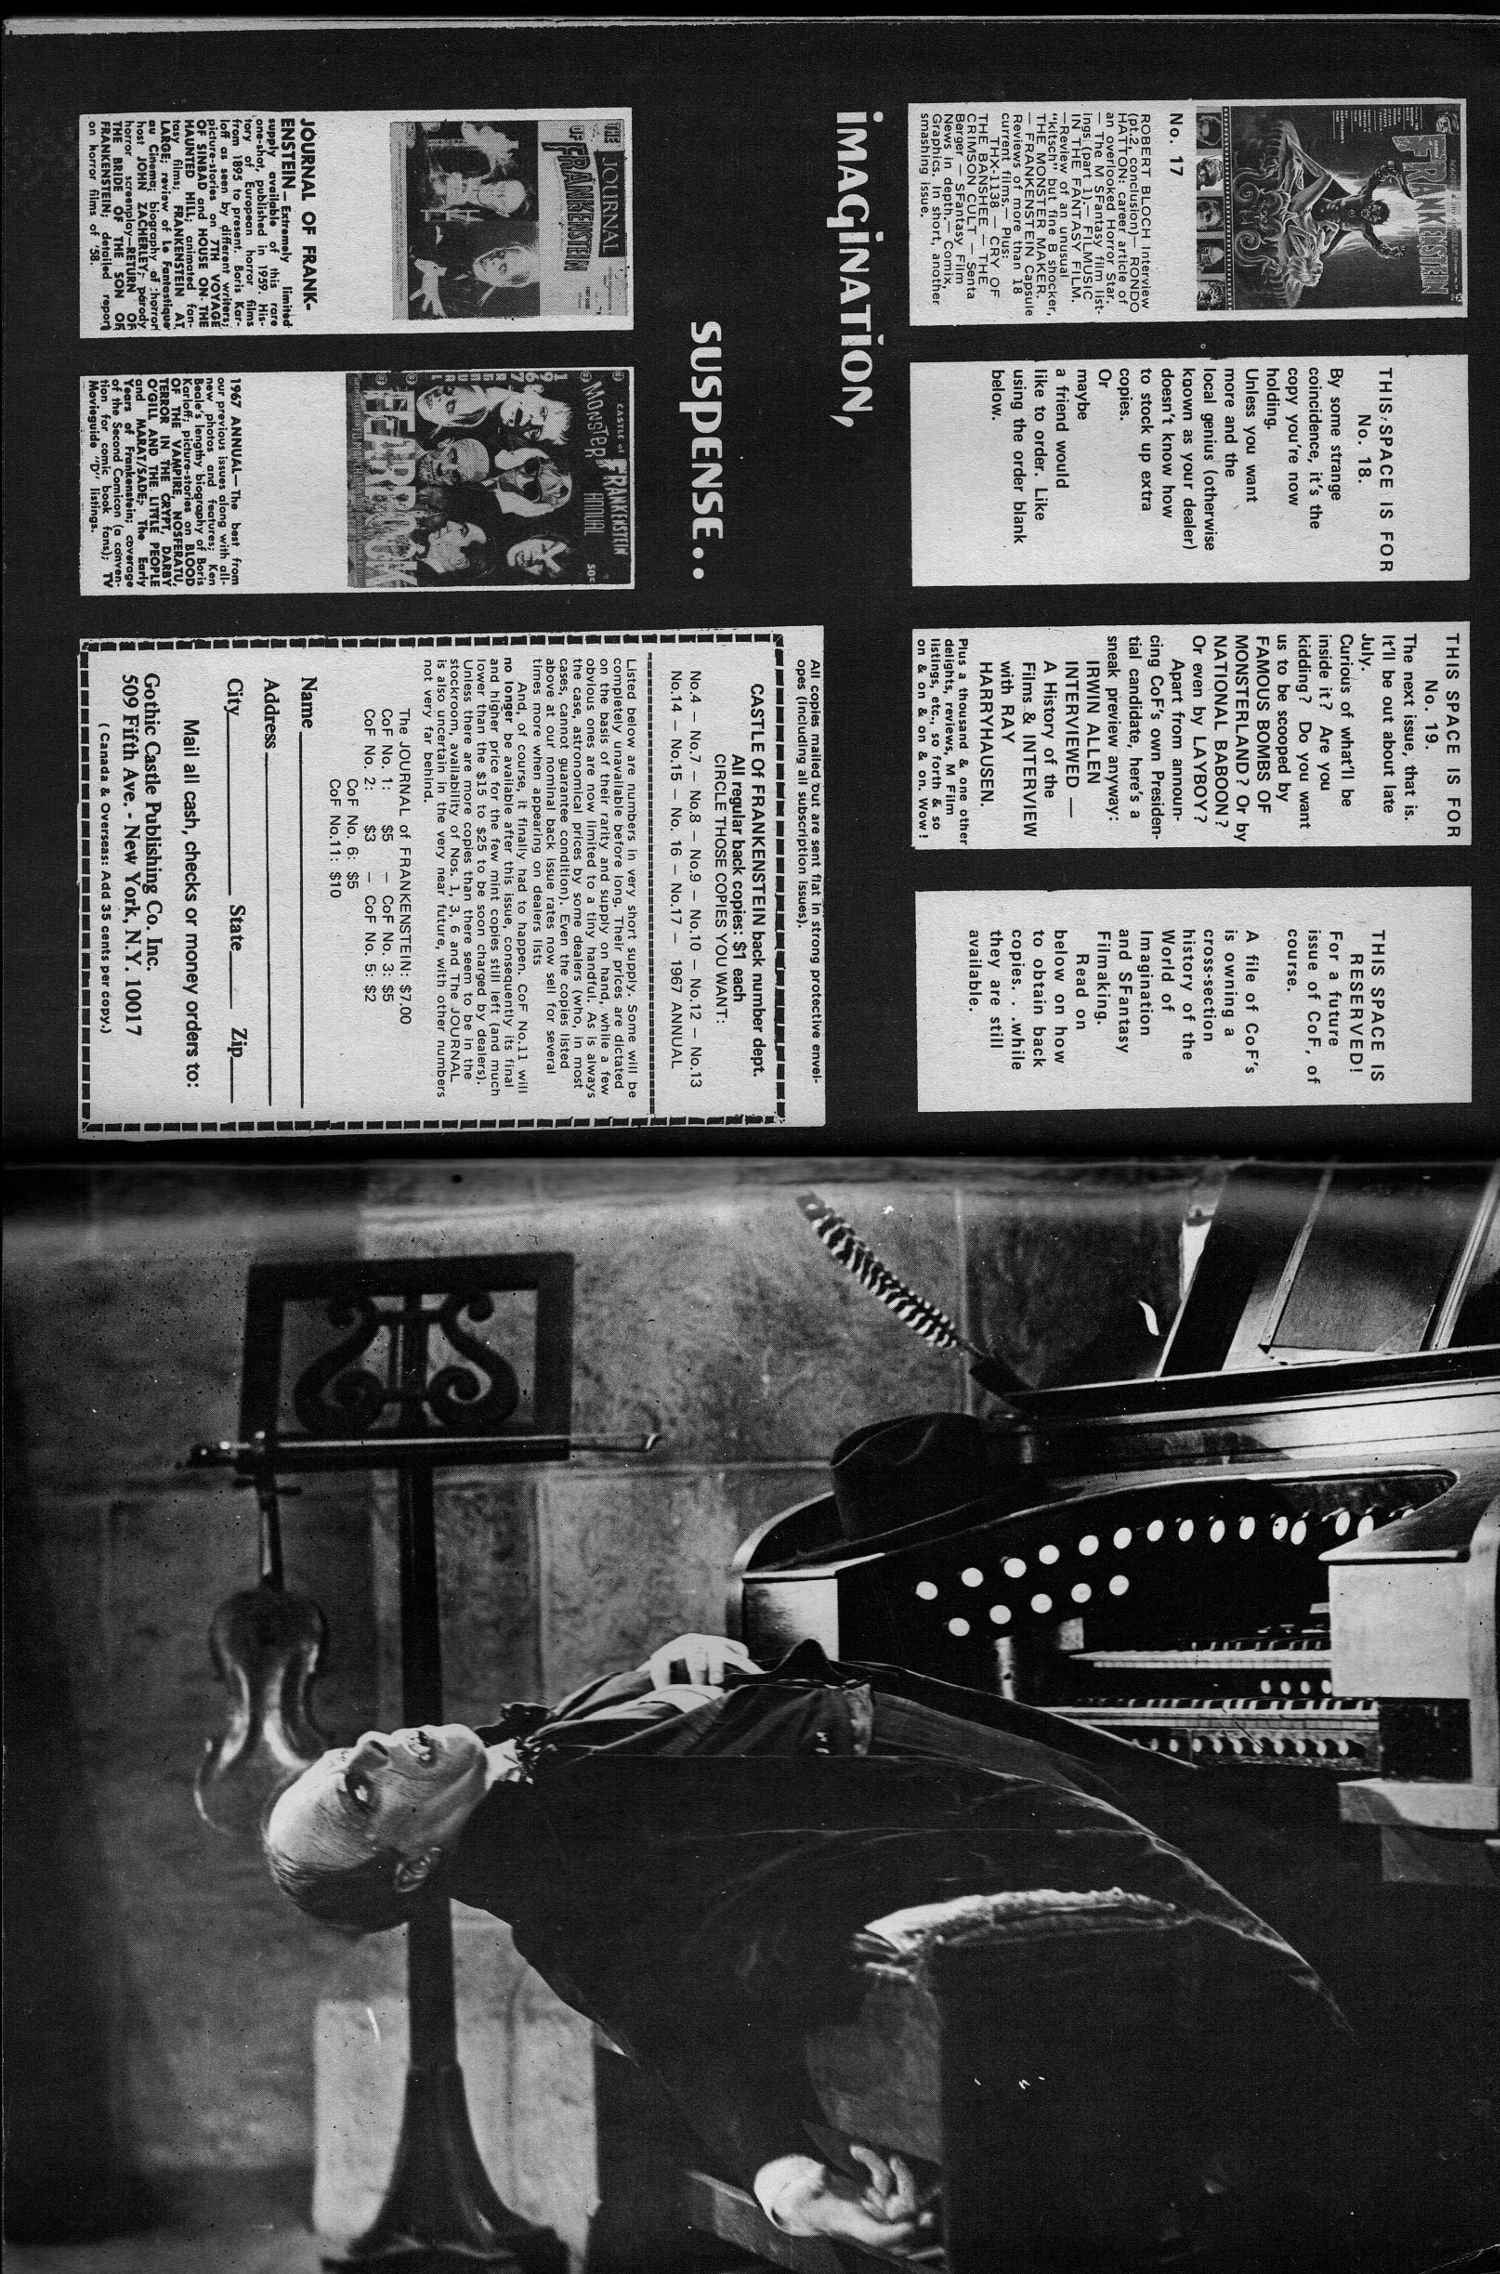 THE JOURNAL
OF FRANKENSTEIN
JOURNAL OF FRANK-
ENSTEIN — Extremely limited
supply available of this rare
one-shot, published in 1959. His-
tory of European horror films
from 1895 to present; Boris Kar-
loff as seen by different writers;
picture-stories on 7TH VOYAGE
OF SINBAD and HOUSE ON THE
HAUNTED HILL; animated fan-
tasy films; FRANKENSTEIN AT
LARGE; review of Le Fantastique
au Cinema; biography of horror
host JOHN ZACHERLEY; parody
horror screenplay—RETURN OF
THE BRIDE OF THE SON OF
FRANKENSTEIN; detailed report
on horror films of '58.
CASTLE of FRANKENSTEIN
MONSTER ANNUAL
50c
1967 ANNUAL — The best from
our previous issues along with all-
new photos and features; Ken
Beale's lengthy biography of Boris
Karloff; picture-stories on BLOOD
OF THE VAMPIRE, NOSFERATU,
TERROR IN THE CRYPT, DARBY
O'GILL AND THE LITTLE PEOPLE
and MARAT/SADE; The Early
Years of Frankenstein; coverage
of the Second Comicon (a conven-
tion for comic book fans); TV
Movieguide "D" listings.
imagination,
suspense..
FRANKENSTEIN
No. 17
ROBERT BLOCH Interview
(pt.2, conclusion)— RONDO
HATTON: career article of
an overlooked Horror Star.
— The M SFantasy film list-
ings (part 1).— FILMUSIC
IN THE FANTASY FILM.
—Review of an unusual
"kitsch" but fine B shocker,
THE MONSTER MAKER.
— FRANKENSTEIN Capsule
Reviews of more than 18
current films.— Plus:
— THX-1138 — CRY OF
THE BANSHEE — THE
CRIMSON CULT — Senta
Berger — SFantasy Film
News in depth.— Comix,
Graphics. In short, another
smashing issue.
THIS SPACE IS FOR
No. 18.
By some strange
coincidence, it's the
copy you're now
holding.
Unless you want
more and the
local genius (otherwise
known as your dealer)
doesn't know how
to stock up extra
copies.
Or
maybe
a friend would
like to order. Like
using the order blank
below.
THIS SPACE IS FOR
No. 19.
The next issue, that is.
It'll be out about late
July.
Curious of what'll be
inside it? Are you
kidding? Do you want
us to be scooped by
FAMOUS BOMBS OF
MONSTERLAND? Or by
NATIONAL BABOON?
Or even by LAYBOY?
Apart from announ-
cing CoF's own Presiden-
tial candidate, here's a
sneak preview anyway:
IRWIN ALLEN
INTERVIEWED —
A History of the
Films & INTERVIEW
with RAY
HARRYHAUSEN.
Plus a thousand & one other
delights, reviews, M Film
listings, etc., so forth & so
on & on & on & on. Wow!
THIS SPACE IS
RESERVED!
For a future
issue of CoF, of
course.
A file of CoF's
is owning a
cross-section
history of the
World of
Imagination
and SFantasy
Filmaking.
Read on
below on how
to obtain back
copies. . .while
they are still
available.
All copies mailed out are sent flat in strong protective envel-
opes (including all subscription issues).
CASTLE Of FRANKENSTEIN back number dept.
All regular back copies: $1 each
CIRCLE THOSE COPIES YOU WANT:
No.4 — No.7 — No.8 — No.9 — No.10 — No.12 — No.13
No.14 — No.15 — No. 16 — No.17 — 1967 ANNUAL
Listed below are numbers in very short supply. Some will be
completely unavailable before long. Their prices are dictated
on the basis of their rarity and supply on hand, while a few
obvious ones are now limited to a tiny handful. As is always
the case, astronomical prices by some dealers (who, in most
cases, cannot guarantee condition). Even the copies listed
above at our nominal back issue rates now sell for several
times more when appearing on dealers lists
And, of course, it finally had to happen. CoF No.11 will
no longer be available after this issue, consequently its final
and higher price for the few mint copies still left (and much
lower than the $15 to $25 to be soon charged by dealers).
Unless there are more copies than there seem to be in the
stockroom, availability of Nos. 1, 3, 6 and The JOURNAL
is also uncertain in the very near future, with other numbers
not very far behind.
The JOURNAL of FRANKENSTEIN: $7.00
CoF No. 1: $5 — CoF No. 3: $5
CoF No. 2: $3 — CoF No. 5: $2
CoF No. 6: $5
CoF No.11: $10
Name
Address
City State Zip
Mail all cash, checks or money orders to:
Gothic Castle Publishing Co. Inc.
509 Fifth Ave. - New York, N.Y. 10017
( Canada & Overseas: Add 35 cents per copy.)